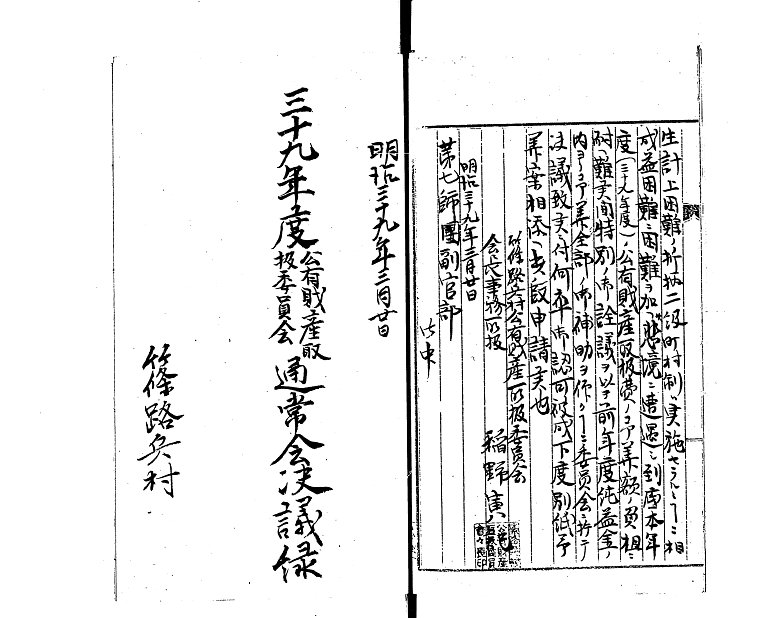 生計上困難ノ折柄二級町村制ヲ実施セラルヽコトニ相
成益困難ニ困難ヲ加ヘ悲境ニ遭遇シ到底本年
度(三十九年度)ノ公有財産取扱費ノ予算額ノ負担ニ
耐ヘ難ク候間特別ノ御詮議ヲ以テ前年度純益金ノ
内ヨリ予算全部ノ御補助ヲ仰クコトニ委員会ニ於テ
決議致候ニ付何卒御認可被成下度別紙予
算案相添ヘ此段申請候也
篠路兵村公有財産取扱委員会
会長事務取扱
稲野寅
明治三十九年三月廿日
第七師團副官部
御中
明治三十九年三月廿日
三十九年度公有財産取扱委員会通常会決議録
篠路兵村